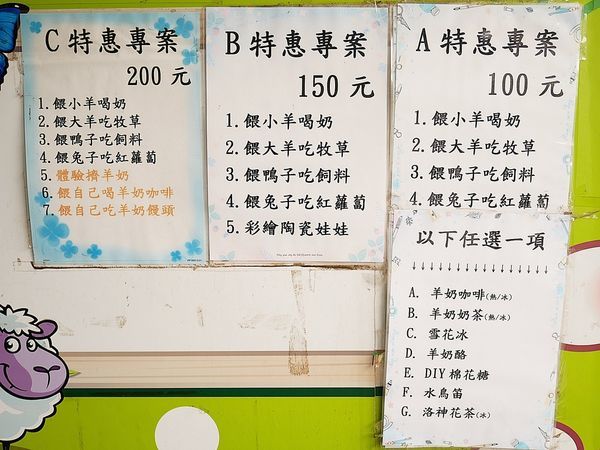 C 特惠專案
200 元
1. 餵小羊喝奶
2. 餵大羊吃牧草
3. 餵鴨子吃飼料
4. 餵兔子吃紅蘿蔔
5. 體驗擠羊奶
6. 餵自己喝羊奶咖啡
7. 餵自己吃羊奶饅頭
B 特惠專案
150 元
1. 餵小羊喝奶
2. 餵大羊吃牧草
3. 餵鴨子吃飼料
4. 餵兔子吃紅蘿蔔
5. 彩繪陶瓷娃娃
A 特惠專案
100 元
1. 餵小羊喝奶
2. 餵大羊吃牧草
3. 餵鴨子吃飼料
4. 餵兔子吃紅蘿蔔
以下任選一項
↓↓↓↓↓↓↓↓↓↓↓↓↓
A. 羊奶咖啡(熱/冰)
B. 羊奶奶茶(熱/冰)
C. 雪花冰
D. 羊奶酪
E. DIY 棉花糖
F. 水鳥笛
G. 洛神花茶(冰)